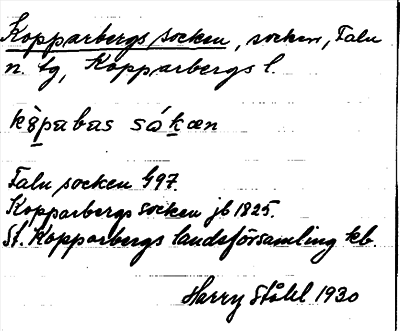 Kopparbergs socken, socken, Falu
n. tg, Kopparbergs l.
kòpabas sókæn
Falu socken 1497.
Kopparbergs socken jb 1825.
St. Kopparbergs landsförsamling kb.
Harry Ståhl 1930